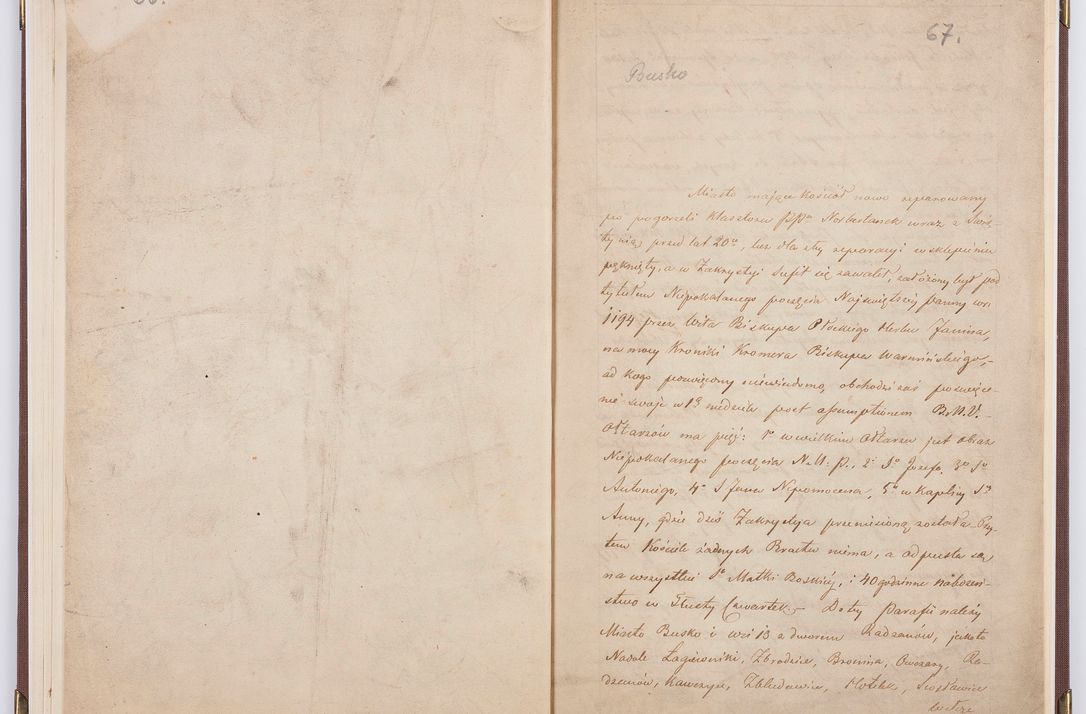 67.
Busko
Miasto mające Kościół nowo reparowany
po pogorzeli Klasztoru PPn Norbertanek wraz z Świą-
tynią, przed lat 20u, lecz dla złey reparacyi w sklepieniu
pęknięty, a w Zakrystyi Sufit się zawalił, założony był pod
tytułem Niepokalanego poczęcia Najświętszej Panny w r:
1194 przez Wita Biskupa Płockiego Herbu Janina,
na mocy Kroniki Kromera Biskupa Warmińskiego,-
od kogo poswięcony niewiadomo, obchodzi zaś poswięce-
nie swoje w 13 niedziele post assumptionem B.M.V.
Ołtarzów ma pięć: 1o w wielkim Ołtarzu jest obraz
Niepokalanego poczęcia N.M.P., 2o So Jozefa, 3o So
Antoniego, 4o S Jana Nepomocena, 5o w Kaplicy S
Anny, gdzie dziś Zakrystya przeniesioną została. Przy
tem Kościele żadnych Bractw niema, a odpusta są
na wszystkie Sa Matki Boskiéj, i 40 godzinne nabożeń-
stwo w Tłusty Czwartek. Do tey Parafii należy
Miasto Busko i wsi 13 z dworem Radzanów, jakoto
Nadole Łagiewniki, Zbrodzice, Bronina, Owczary, Ra-
dzanów, Kawczyn, Zbludowice, Hotelek, Siesławice